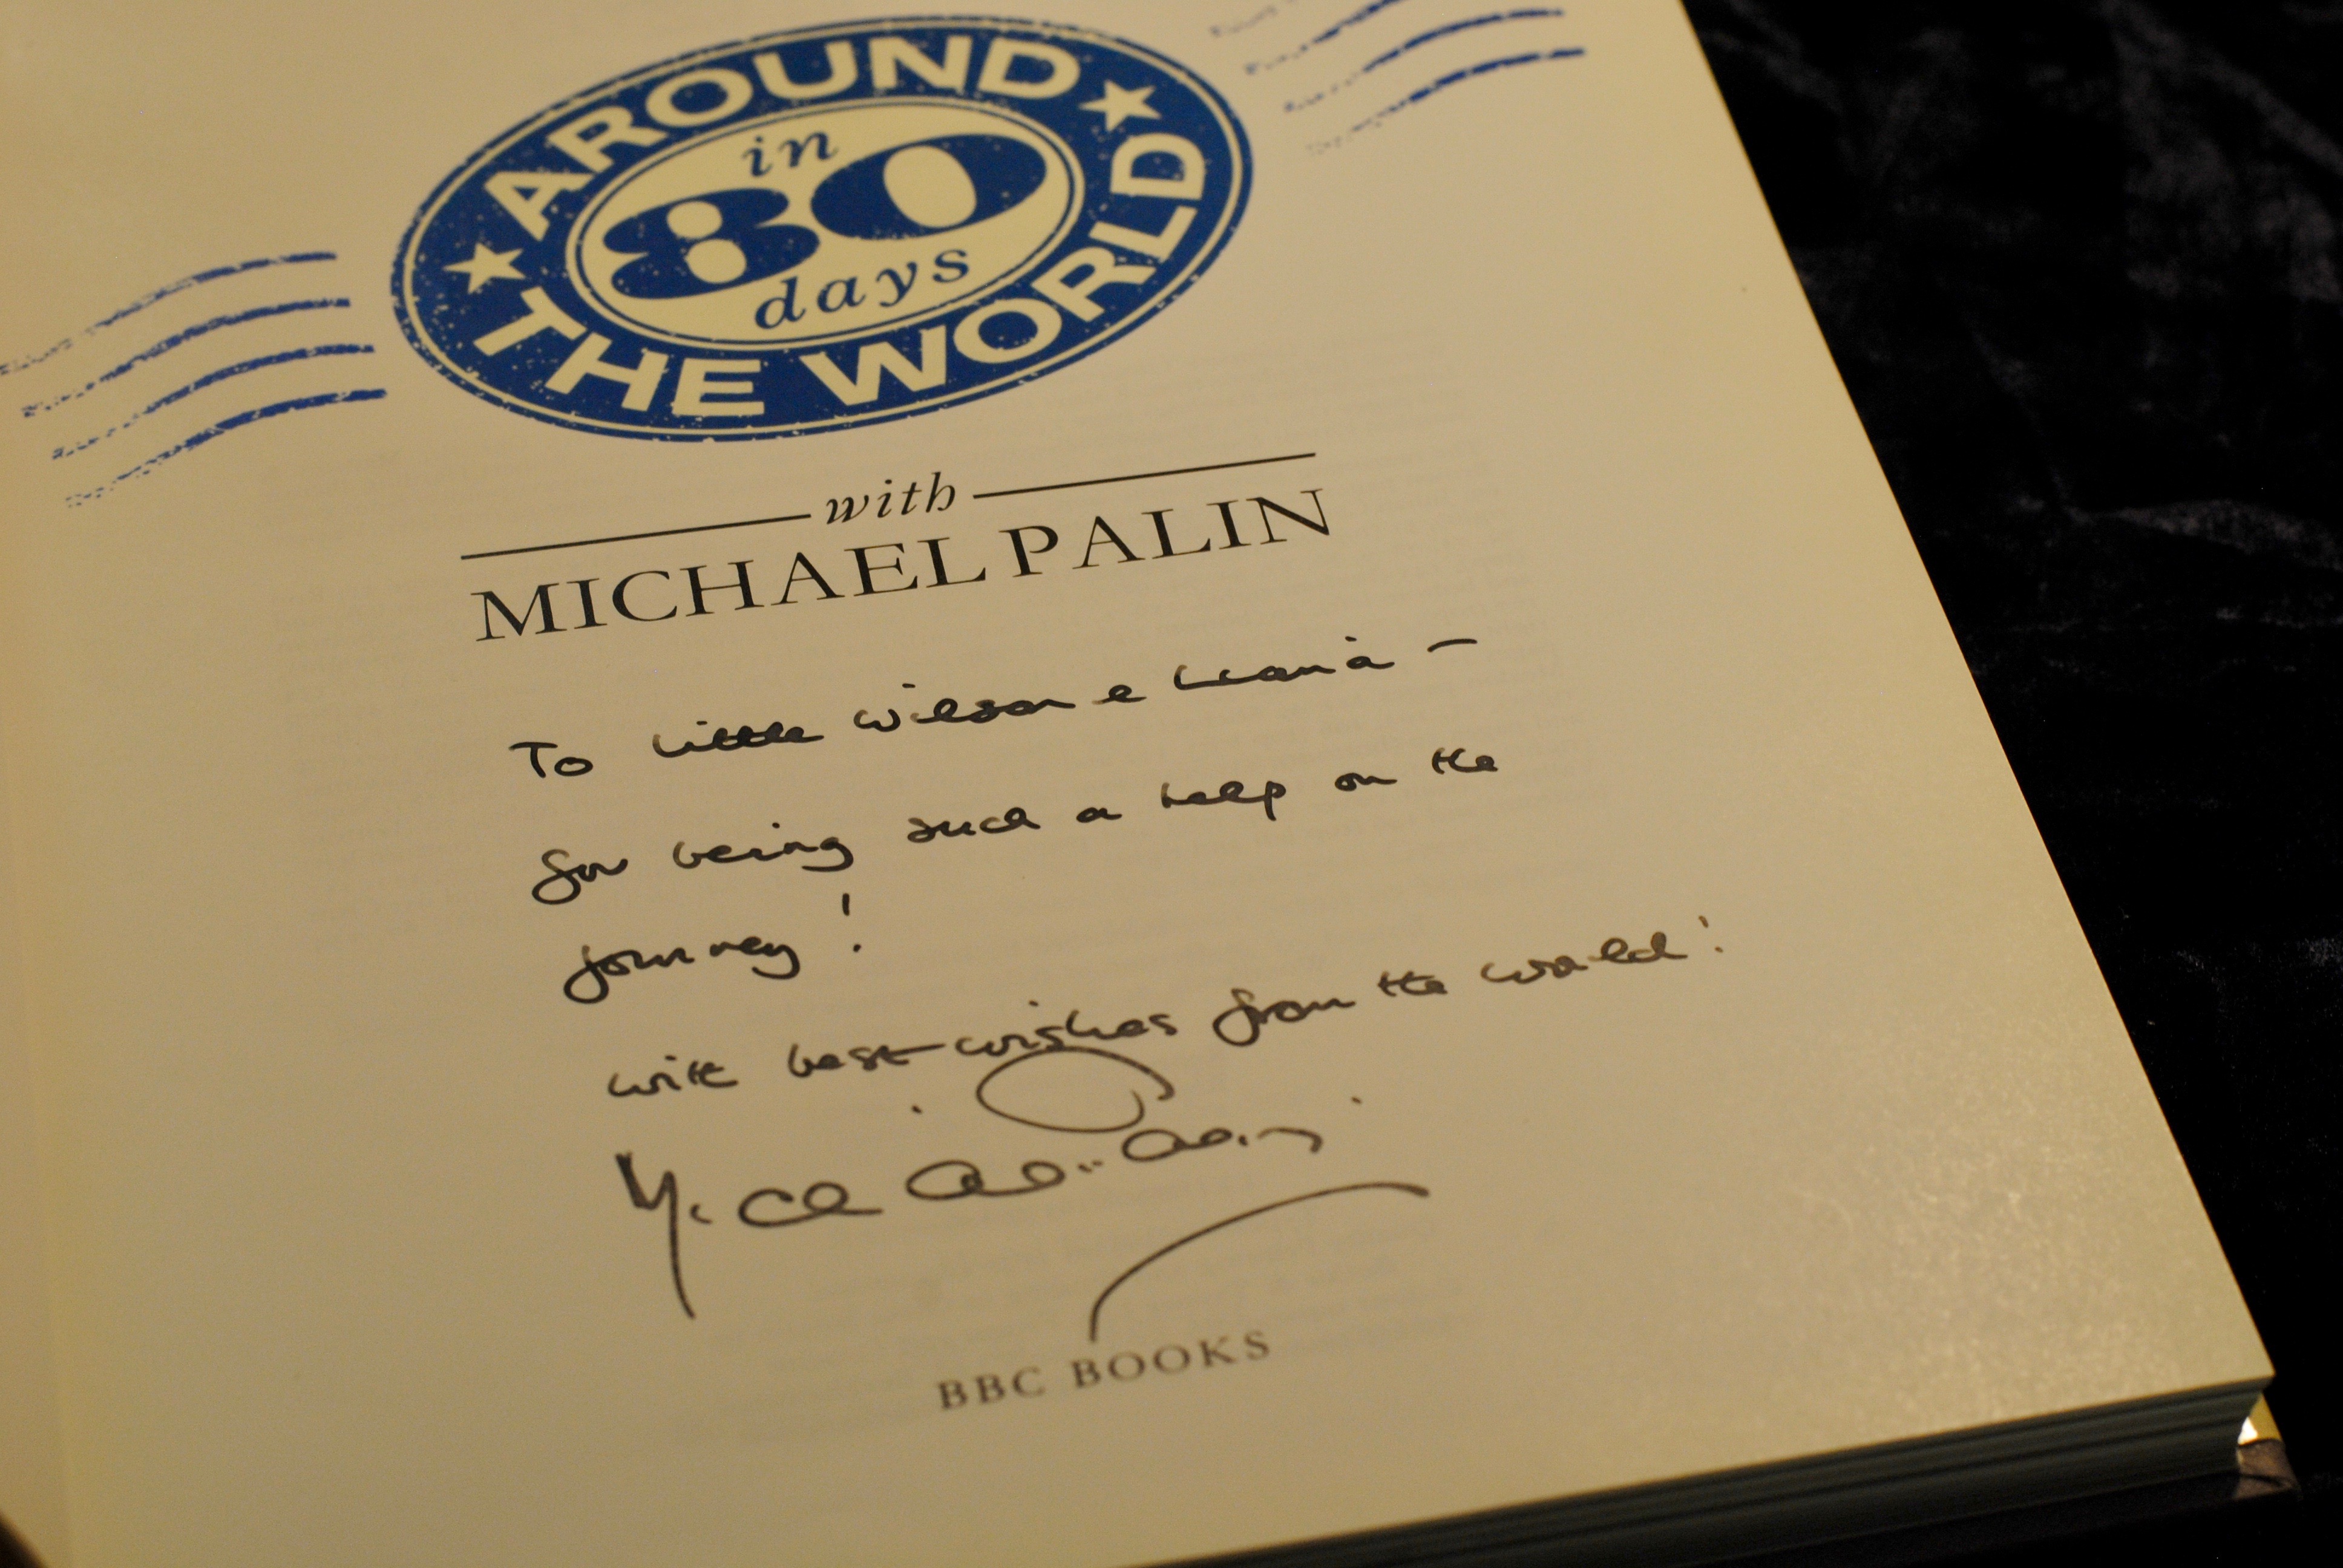 AROUND
in
80
days
THE WORLD
with
MICHAEL PALIN
To Little Wilson &
for being such a help on the
journey!
with best wishes from the world!
Michael Palin
BBC BOOKS